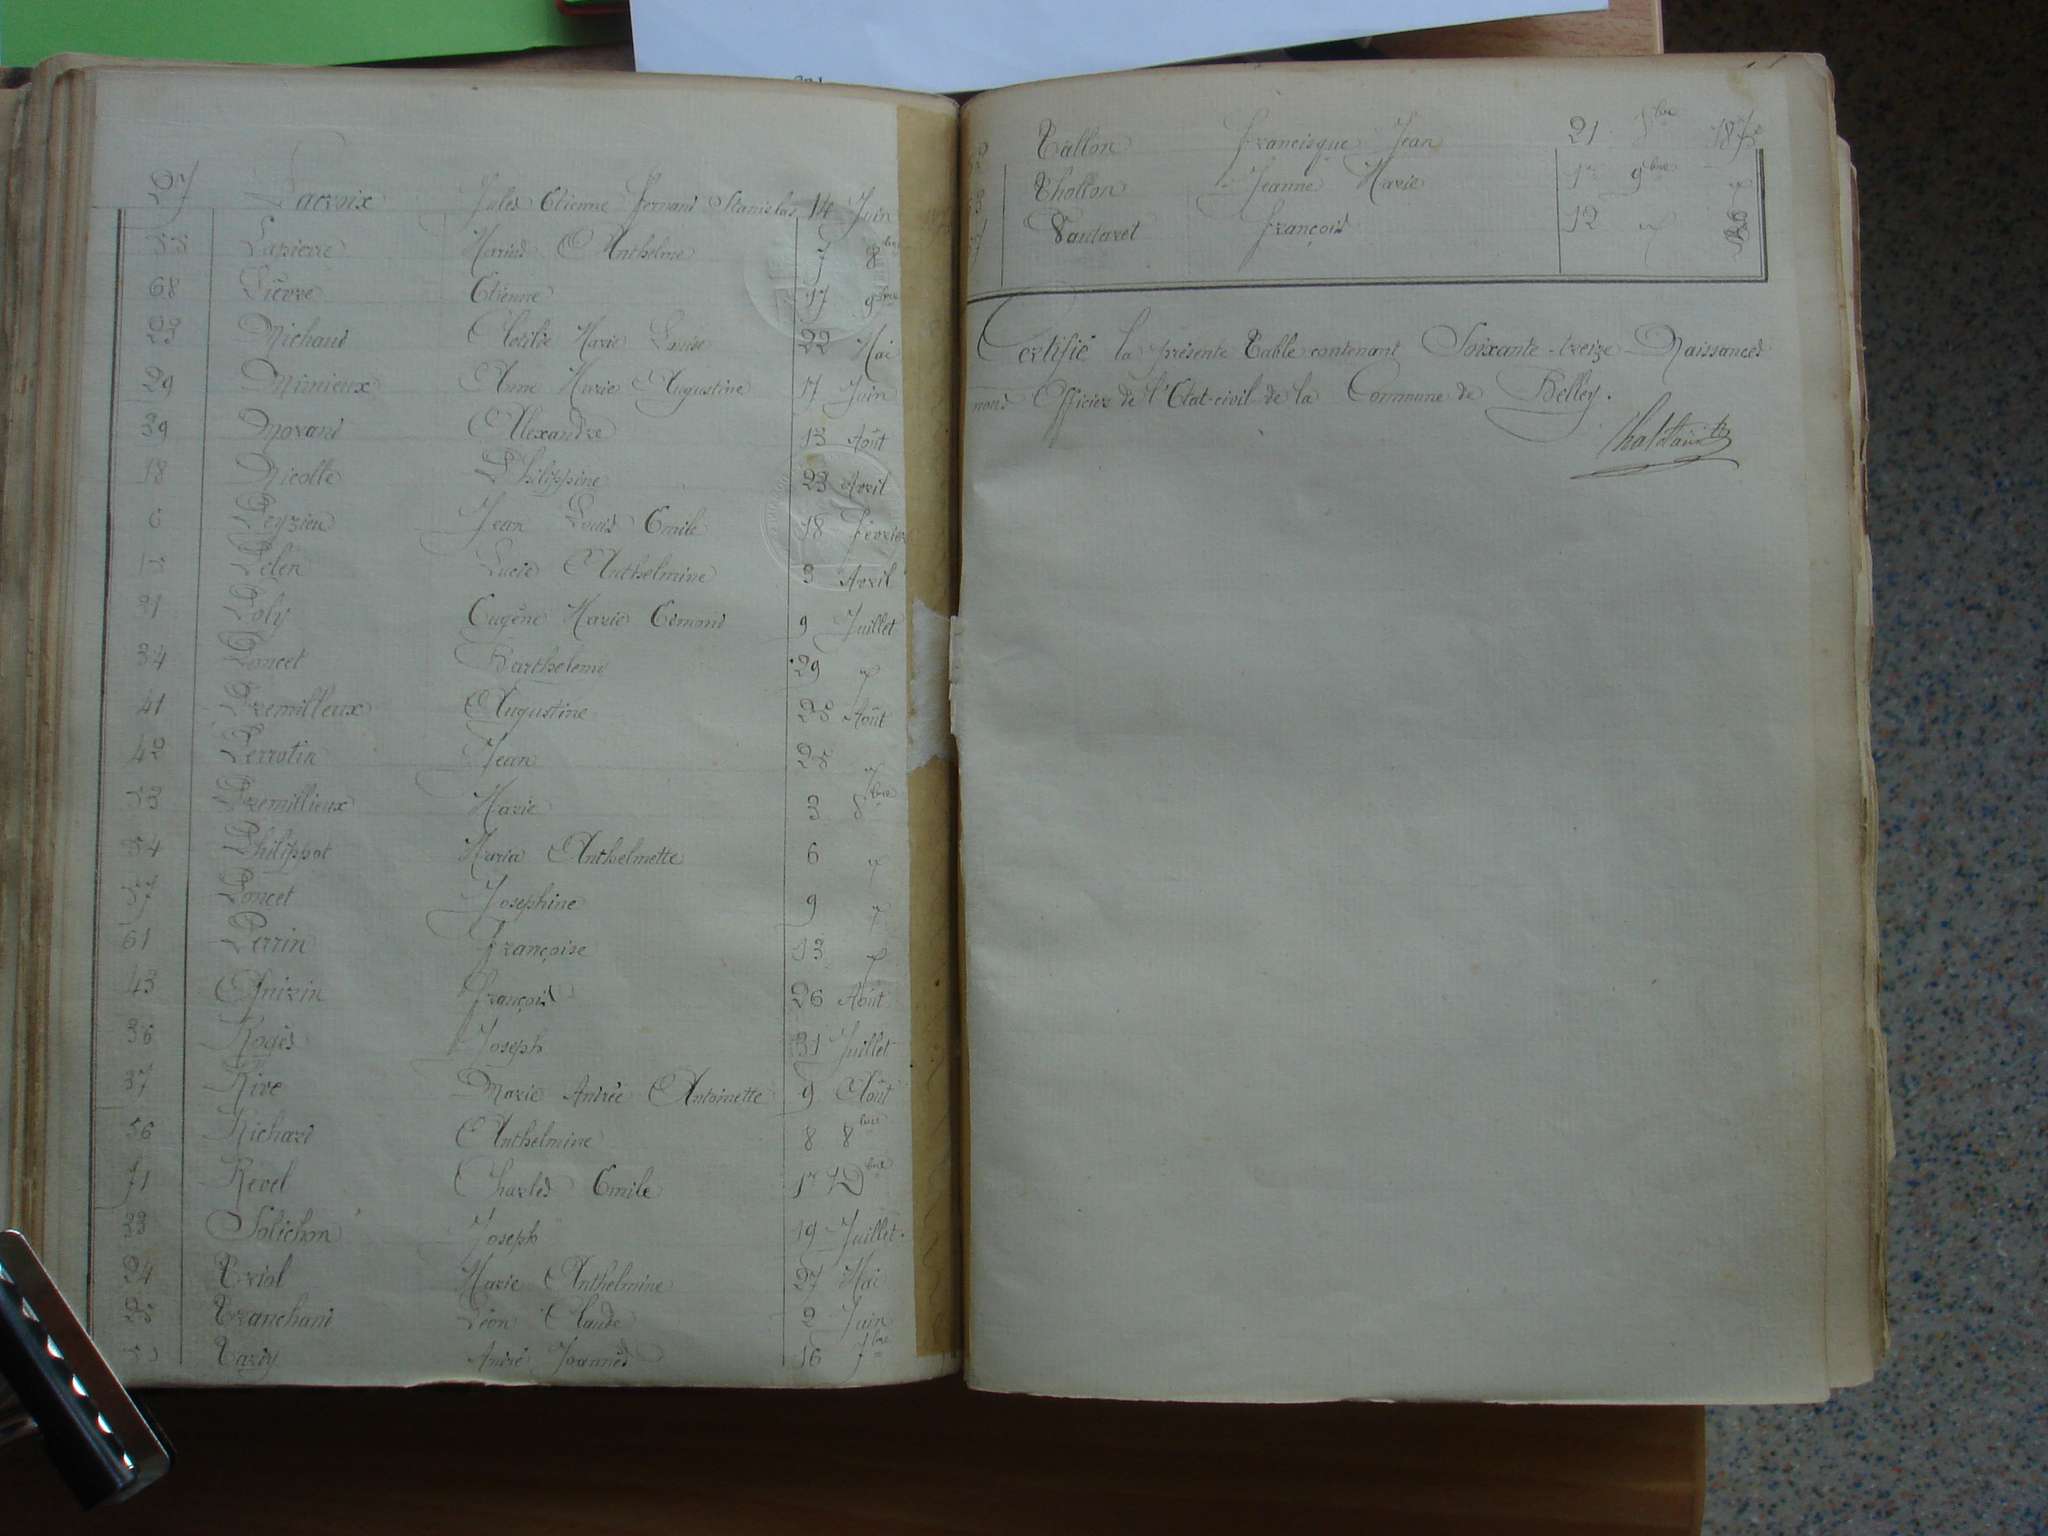 27 Lacroix Jules Etienne Fernand Stanislas 14 Juin
55 Lapierre Marius Anthelme 7 8bre
68 Lièvre Etienne 17 9bre
23 Michaud Clotilde Marie Louise 22 Mai
29 Mimieux Anne Marie Augustine 17 Juin
39 Morand Alexandre 13 Août
18 Nicolle Philippine 23 Avril
6 Peyzieu Jean Louis Emile 18 Février
Pelen Lucie Anthelmine 3 Avril
31 Poly Eugène Marie Edmond 9 Juillet
34 Poncet Barthelemi 29 "
41 Premilleux Augustine 25 Août
42 Perrotin Jean 25 "
53 Premillieux Marie 3 8bre
54 Philippot Maria Anthelmette 6 "
57 Poncet Josephine 9 "
61 Perrin Françoise 13 "
43 Quizin François 26 Août
36 Rogès Joseph 31 Juillet
37 Rive Marie Andrée Antoinette 9 Août
56 Richard Anthelmine 8 8bre
71 Revel Charles Emile 1er Dbre
33 Solichon Joseph 19 Juillet
24 Triol Marie Anthelmine 27 Mai
25 Tranchand Léon Claude 2 Juin
Tardy André Joannès 16 7bre
Tallon Francisque Jean 21 8bre 1873
Thollon Jeanne Marie 1er 9bre "
Vautaret François 12 "
Certifié la présente Table contenant Soixante-treize Naissances
nous Officier de l'Etat-civil de la Commune de Belley.